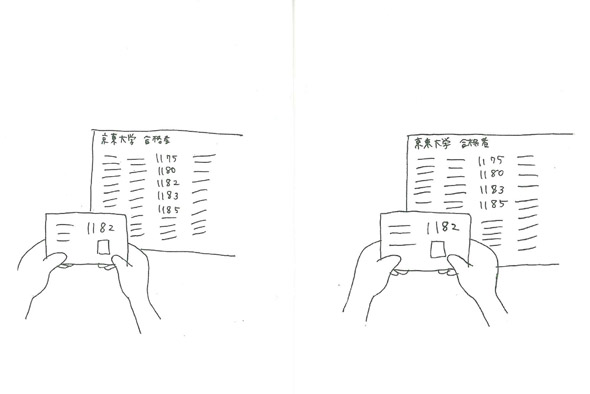 京東大学 合格者
1175
1180
1182
1183
1185
1182
京東大学 合格者
1175
1180
1183
1185
1182